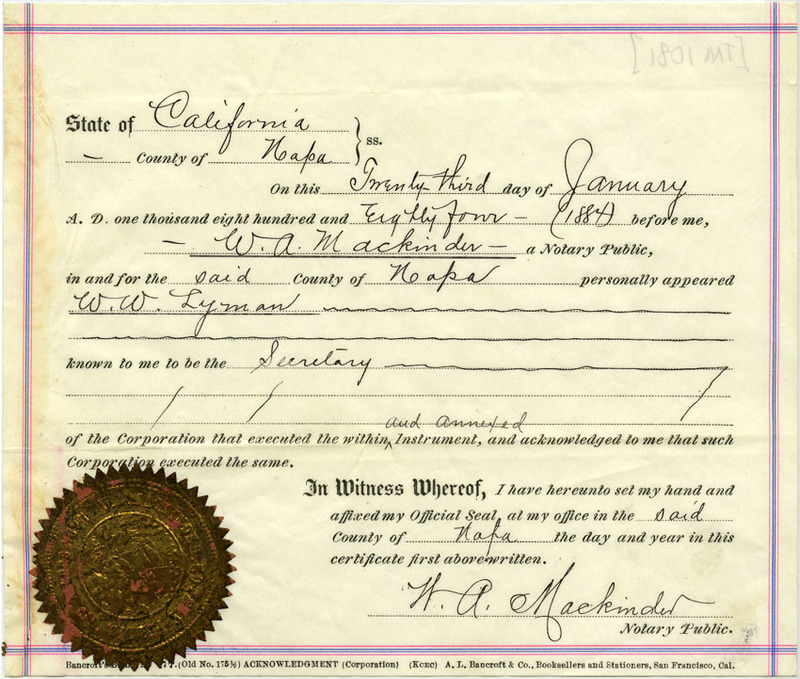 [TM 1081]
State of California
— County of Napa } ss.
On this Twenty-third day of January
A. D. one thousand eight hundred and Eighty four — (1884) before me,
— W. A. Mackinder — a Notary Public,
in and for the said County of Napa personally appeared
W. W. Lyman
known to me to be the Secretary
and annexed
of the Corporation that executed the within ^ Instrument, and acknowledged to me that such
Corporation executed the same.
In Witness Whereof, I have hereunto set my hand and
affixed my Official Seal, at my office in the said
County of Napa the day and year in this
certificate first above written.
W. A. Mackinder
Notary Public.
Bancroft's (Old No. 175½) ACKNOWLEDGMENT (Corporation) (KCEC) A. L. Bancroft & Co., Booksellers and Stationers, San Francisco, Cal.